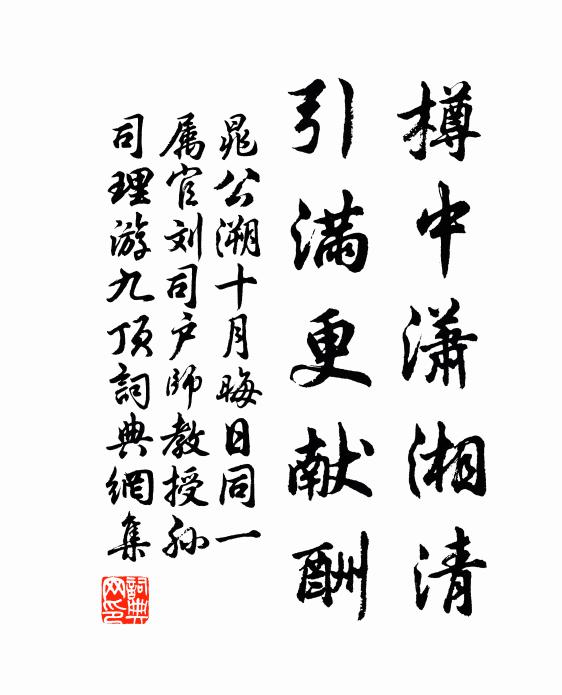 樽中瀟湘清
引满更献酬
晁公溯十月晦日同一
属官刘司户師教授孙
司理游九顶詞典網集
詞典网印